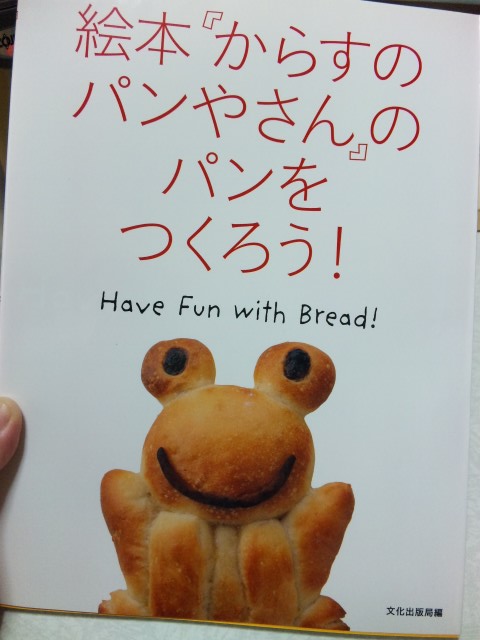 絵本『からすの
パンやさん』の
パンを
つくろう！
Have Fun with Bread!
文化出版局編